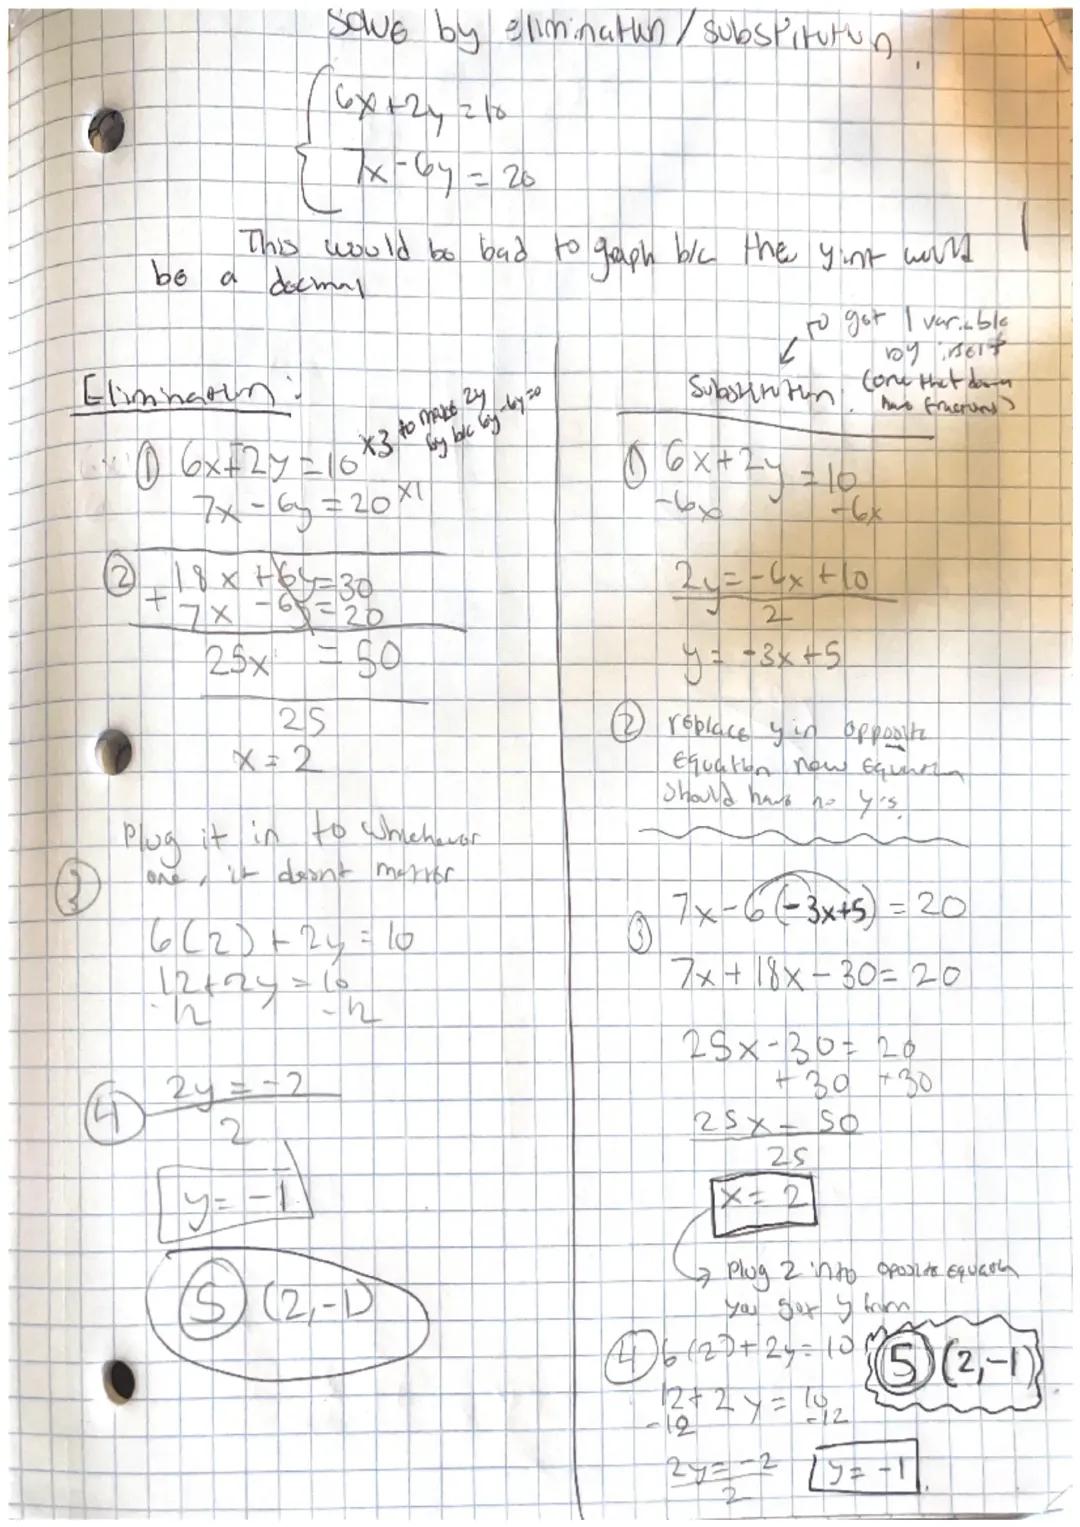 Solve by elimination / substitution.
6x+2y=10
7x-6y=20
This would be bad to graph b/c the y int would
be a decmal
Elimination:
① 6x+2y=10 x3 to make 2y 6y b/c 6y-6y=0
7x-6y=20 x1
② 18x+6y=30
+ 7x-6y=20
25x =50
25
x=2
③ Plug it in to whichever
one, it doesnt matter
6(2)+2y=10
12+2y=10
-12 -12
④ 2y=-2
2
y=-1
Ⓢ (2,-1)
to get 1 variable
by itself
(one that
have fractions)
Substitution:
① 6x+2y=10
-6x -6x
2y=-6x+10
2
y=-3x+5
② replace y in opposite
equation new equation
should have no y's.
③ 7x-6(-3x+5)=20
7x+18x-30=20
25x-30=20
+30 +30
25x=50
25
x=2
Plug 2 into opposite equation
you got y from
④ 6(2)+2y=10
12+2y=10
-12 -12
2y=-2
2
y=-1
Ⓢ (2,-1)